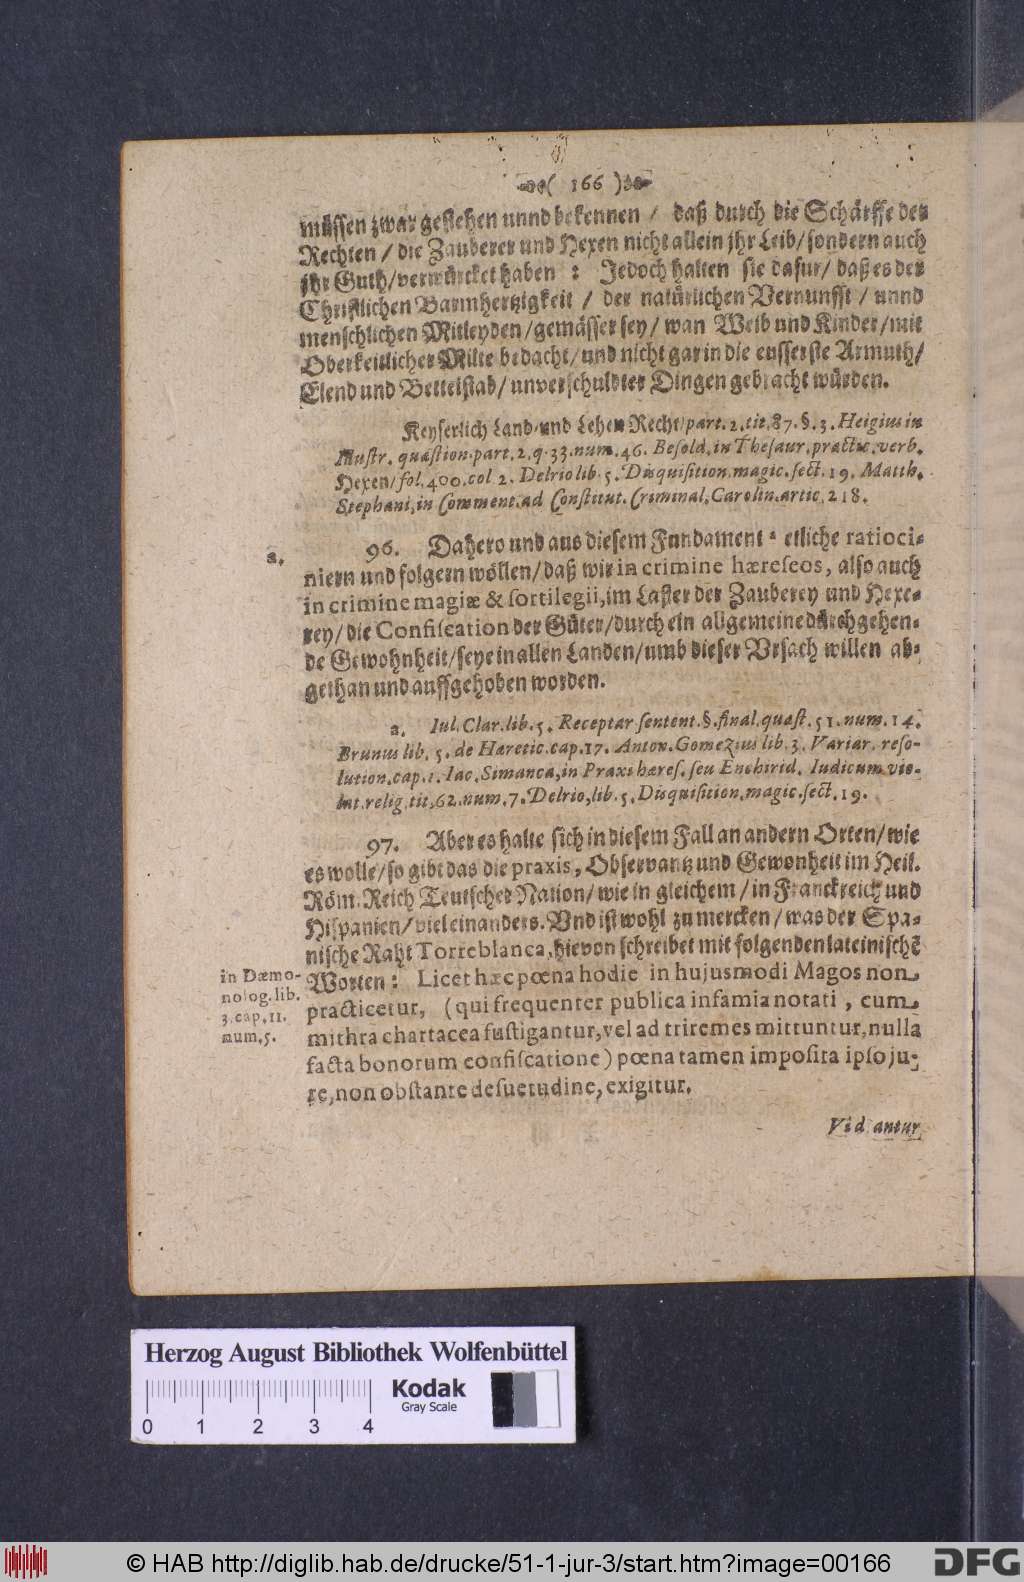 ( 166 )
müssen zwar gestehen unnd bekennen / daß durch die Schärffe der
Rechten / die Zauberer und Hexen nicht allein jhr Leib/ sondern auch
jhr Guth/verwürcket haben : Jedoch halten sie dafur/ daß es der
Christlichen Barmhertzigkeit / der natürlichen Vernunfft / unnd
menschlichen Mitleyden/gemässer sey/ wan Weib und Kinder/mit
Oberkeitlicher Milte bedacht/und nicht gar in die eusserste Armuth/
Elend und Bettelstab/ unverschuldter Dingen gebracht würden.
Keyserlich Land-und Lehen Recht/part.2.tit.87.§.3. Heigius in
Illustr. quæstion.part.2.q.33.num.46. Besold.in Thesaur.practic.verb.
Hexen/fol.400.col 2. Delrio lib.5.Disquisition.magic.sect.19. Matth.
Stephani,in Comment.ad Constitut.Criminal.Carolin.artic.218.
a.
96. Dahero und aus diesem Fundament etliche ratioci-
niern und folgern wöllen/daß wir in crimine hæreseos, also auch
in crimine magiæ & sortilegii,im Laster der Zauberey und Hexe-
rey/die Confiscation der Güter/durch ein allgemeine dürchgehen-
de Gewohnheit/seye in allen Landen/umb dieser Vrsach willen ab-
gethan und auffgehoben worden.
a. Iul.Clar.lib.5. Receptar sentent.§.final.quæst.51.num.14.
Brunus lib.5. de Hæretic.cap.17. Anton.Gomezius lib.3.Variar.reso-
lution.cap.1.Iac.Simanca,in Praxi hæres.seu Enchirid. Iudicum vio-
lat.relig.tit.62.num.7.Delrio,lib.5.Disquisition.magic.sect.19.
97. Aber es halte sich in diesem Fall an andern Orten/wie
es wolle/so gibt das die praxis, Observantz und Gewonheit im Heil.
Röm.Reich Teutscher Nation/wie in gleichem/in Franckreich und
Hispanien/viel einanders. Vnd ist wohl zu mercken/was der Spa-
nische Raht Torreblanca,hievon schreibet mit folgenden lateinischē
Worten: Licet hæc pœna hodie in hujusmodi Magos non
practicetur, (qui frequenter publica infamia notati, cum
mithra chartacea fustigantur,vel ad triremes mittuntur,nulla
facta bonorum confiscatione) pœna tamen imposita ipso ju-
re,non obstante desuetudine,exigitur.
in Dæmo-
nolog.lib.
3.cap.11.
num.5.
Vid antur
Herzog August Bibliothek Wolfenbüttel
Kodak
Gray Scale
0 1 2 3 4
© HAB http://diglib.hab.de/drucke/51-1-jur-3/start.htm?image=00166
DFG